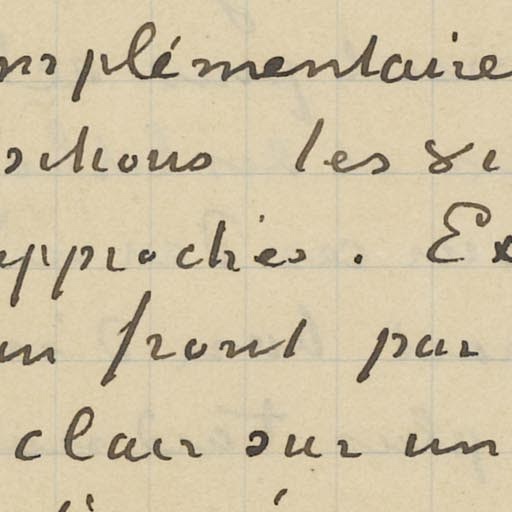 mplémentaire
les
approchés. Ex
un front par
clair sur un